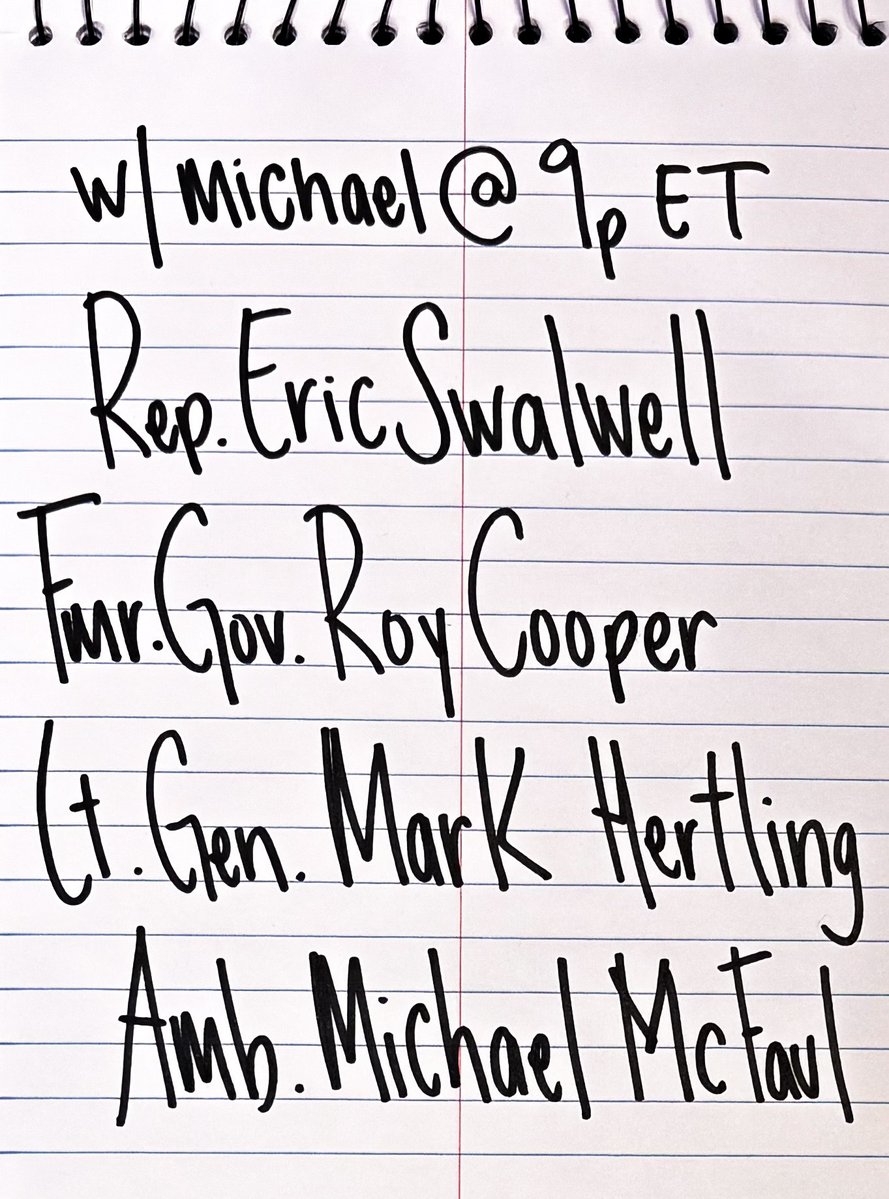 w/ Michael @ 9p ET
Rep. Eric Swalwell
Fmr. Gov. Roy Cooper
Lt. Gen. Mark Hertling
Amb. Michael McFaul